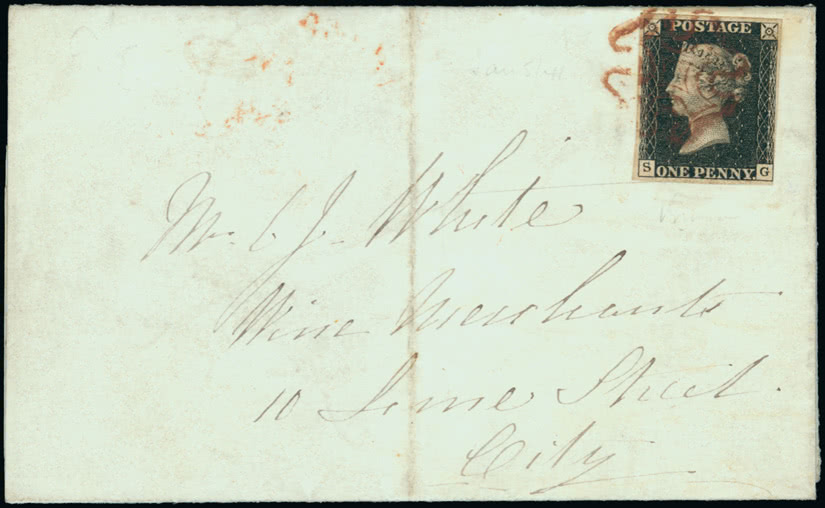 POSTAGE
S G
ONE PENNY.
Mr C J White
Wine Merchants
10 Lime Street.
City